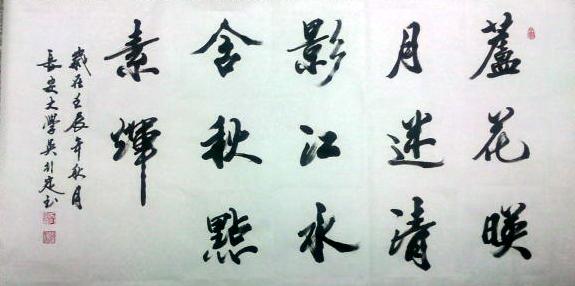 蘆花暎
月迷清
影江水
含秋點
素輝
歲在壬辰年秋月
長安大學吳引定书